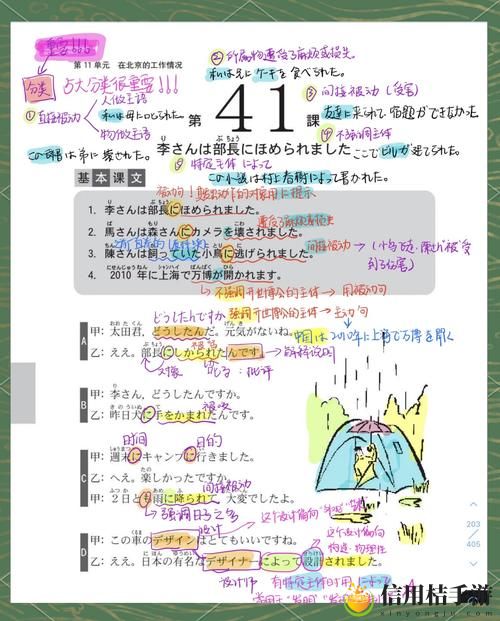 重要!!!
第11单元 在北京的工作情况
② 所属物遭受了麻烦或损失
私は兄にケーキを食べられた。
分类
占大分类很重要!!!
人做主语
① 直接被动
私は母に叱られた。
物做主语
③ 间接被动（受害）
友達に来られて宿題ができなかった
④ 不强调主体
第41課
この窓は弟に壊された。
李さんは部長にほめられました
ここでビルが建てられた。
⑤ 特定主体 によって
この小説は村上春樹によって書かれた。
基本课文
1. 李さんは部長にほめられました。
2. 馬さんは森さんにカメラを壊されました。
3. 陳さんは飼っていた小鳥に逃げられました。
间接被动
4. 2010年に上海で万博が開かれます。
不强调开世博会的主体→用被动句
どうしたんですか
强调开世博会的主体→主动句
中国は2010年に上海で万博を開く
A
甲：太田君，どうしたんだ。元気がないね。
乙：ええ。部長にしかられたんです。
解释说明
对象
叱る：批评
B
甲：李さん，どうしたんですか。
乙：昨日犬に手をかまれたんです。
被咬
时间
目的
C
甲：週末にキャンプに行きました。
乙：へえ。楽しかったですか。
间接被动
甲：2日とも雨に降られて，大変でしたよ。
设计
D
甲：この車のデザインはとてもいいですね。
乙：ええ。日本の有名なデザイナーによって設計されました。
设计师
有特定主体时用によって
203
405
信用桔手游
xinyongju.com